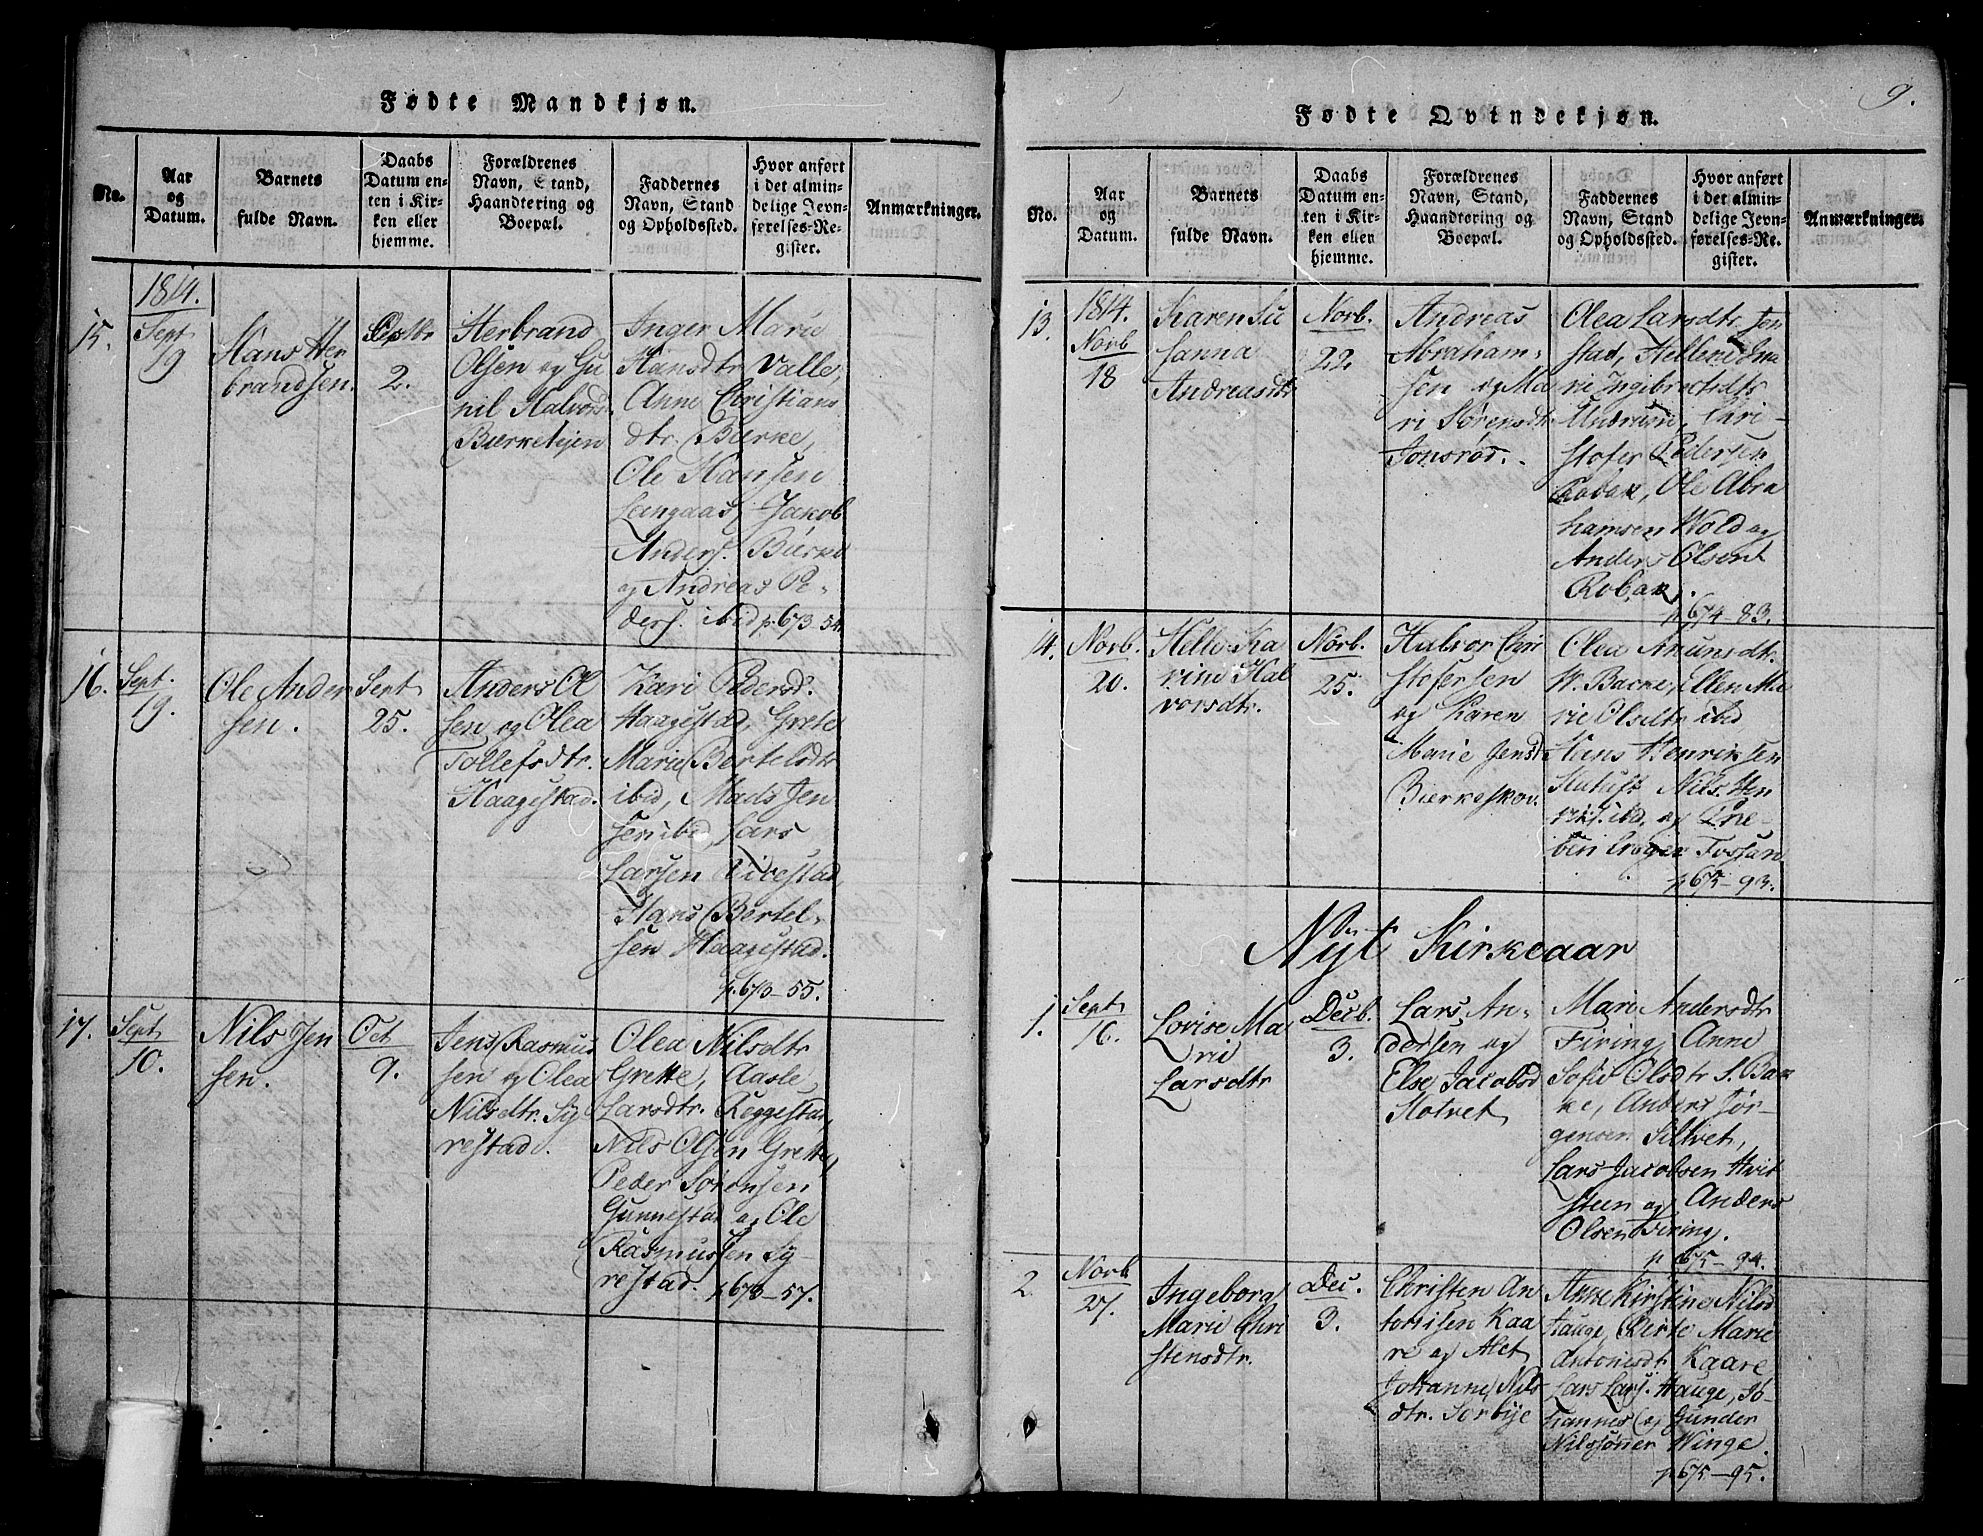 Fødte Mandkjøn.
No.
Aar
og
Datum.
Barnets
fulde Navn.
Daabs
Datum en-
ten i Kir-
ken eller
hjemme.
Forældrenes
Navn, Stand,
Haandtering og
Boepæl.
Faddernes
Navn, Stand
og Opholdssted.
Hvor anført
i det almin-
delige Jevn-
førelses-Re-
gister.
Anmærkninger.
1814.
15.
Sept
19
Hans Her
brandsen.
2.
Herbrand
Olsen og Gu
nil Halvors
Inger Marie
Hansdtr Valle,
Anne Christians
dtr. Bærke,
Ole Hansen
Langaas, Jakob
Anders. Bærke
og Andreas Pe-
ders. ibid p. 673-54.
16.
Sept.
19.
Ole Ander
sen.
Sept
25.
Anders Ol
sen og Olea
Tollefsdtr.
Haagestad.
Kari Pedersd.
Haagestad, Grete
Marie Bertelsdtr
ibid, Mads Jen
sen ibid, Lars
Larsen
Hans Bertel-
sen Haagestad.
p. 673-55.
17.
Sept
10.
Nils Jen
sen.
Oct
9.
Jens Rasmus
sen og Olea
Nilsdtr. Sy
restad.
Olea Nilsdtr
Grette, Aasle
Larsdtr. Reggestad,
Nils Olsen Grette,
Peder Sørensen
Gunnestad og Ole
Rasmussen Sy-
restad. p. 673-57.
9.
Fødte Qvindekjøn.
No.
Aar
og
Datum.
Barnets
fulde Navn.
Daabs
Datum en-
ten i Kir-
ken eller
hjemme.
Forældrenes
Navn, Stand,
Haandtering og
Boepæl.
Faddernes
Navn, Stand
og Opholdssted.
Hvor anført
i det almin-
delige Jevn-
førelses-Re-
gister.
Anmærkninger.
13.
1814.
Novb
18
Karen Su
sanna
Andreasdtr
Novb.
22.
Andreas
Abraham-
sen og Ma
ri Sørensdtr
Jonsrød.
Olea Larsdtr Jen
stad, Hellene
ri Ingibrectsdtr
Undrum, Chri-
stofer Pedersen
Robak, Ole Abra
hamsen Wold og
Anders Olsen
Robak.
p. 674-83.
14.
Novb.
20.
Helle Ka
rine Hal
vorsdtr.
Novb.
25.
Halvor Chri
stofersen
og Karen
Marie Jensdt
Bærkeskov.
Olea Amunsdtr.
W. Backe, Ellen Ma
rie Olsdtr ibid,
Hans Henriksen
Nils Hen
riks. ibid. og
Fossan
p 675-93.
Nyt Kirkeaar
1.
Sept
16.
Lovise Ma
rie
Larsdtr
Decb.
3.
Lars An-
dersen og
Else Jacobsd
Holtvet
Mari Andersdtr
Firing, Anne
Sofie Olsdtr S. Bak
ke, Anders Jør-
gensen Siltvet,
Lars Jacobsen Hvit
steen og Anders
Olsen Firing.
p 675-94.
2.
Novb
27.
Ingeborg
Marie Chri
stensdtr.
Dec.
3.
Christen An
tonisen Kaa
re og Alet
Johanne Nils
dtr. Sorbye
Anne Kirstine Nilsd
Hauge, Berte Marie
Antonisdtr Kaare
Lars Lars. Hauge, Jo-
hannes og Gunder
Nilssønner Winge.
p 675-95.